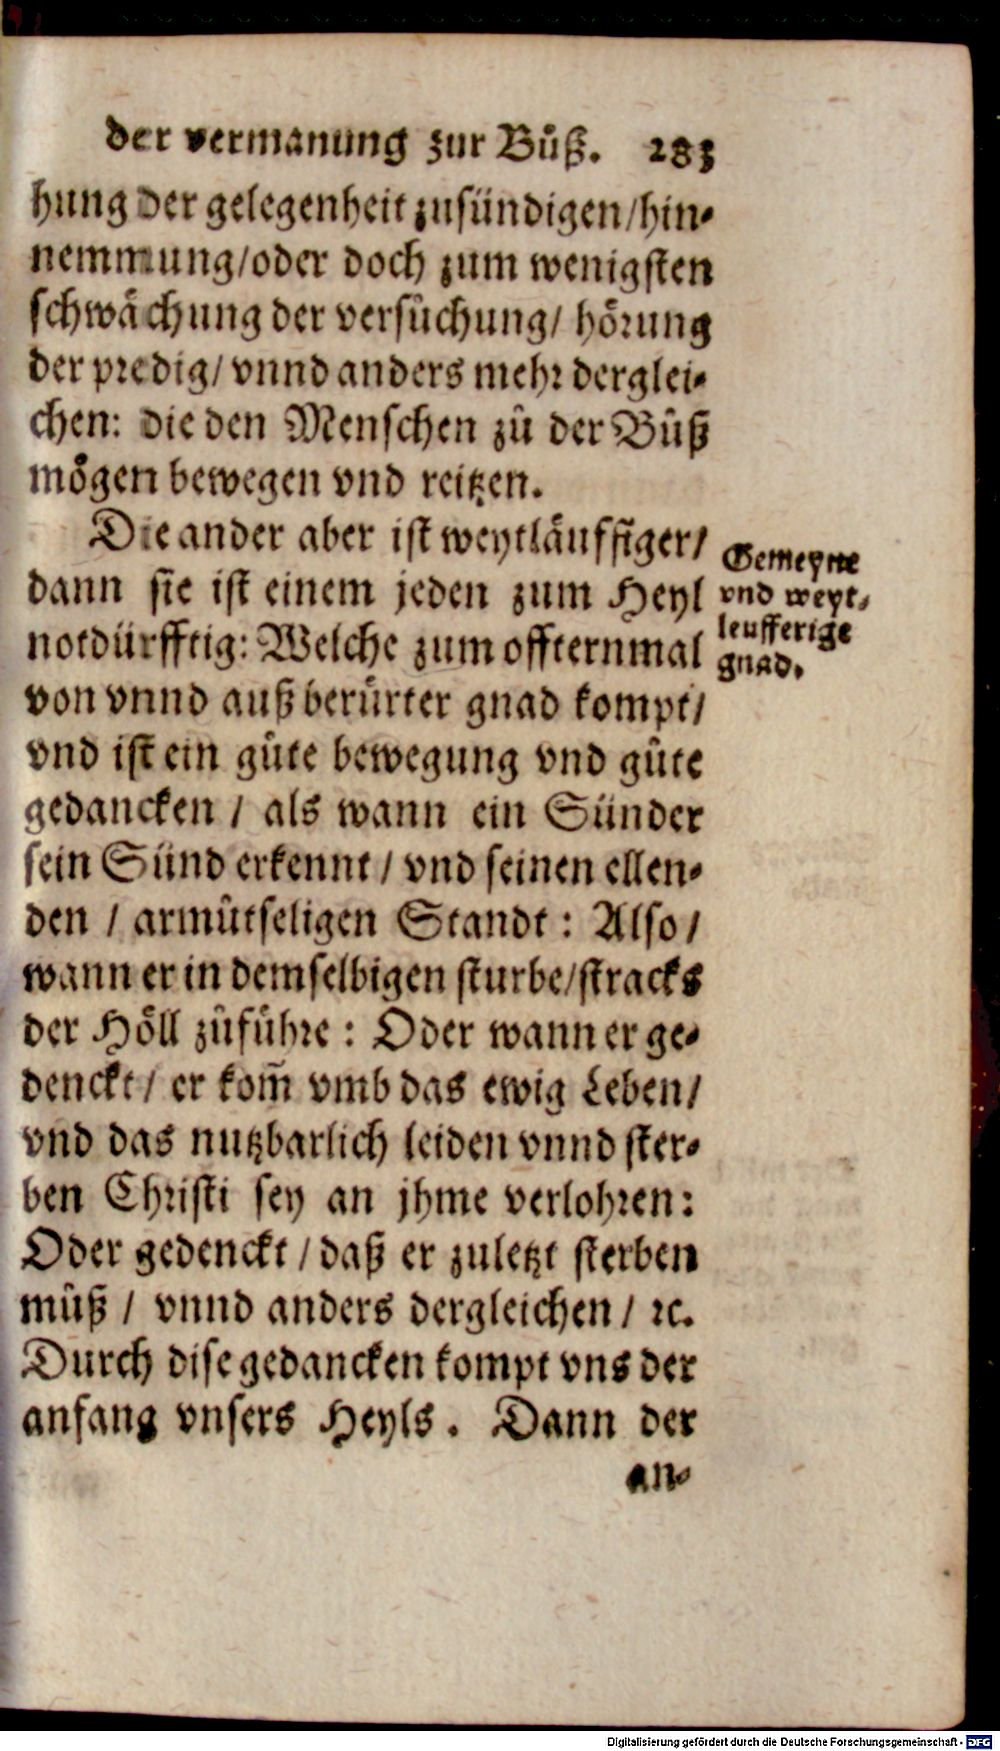 der vermanung zur Bůß. 283
hung der gelegenheit zusündigen/hin-
nemmung/oder doch zum wenigsten
schwächung der versůchung/ hörung
der predig/ vnnd anders mehr derglei-
chen: die den Menschen zů der Bůß
mögen bewegen vnd reitzen.
Die ander aber ist weytläuffiger/
dann sie ist einem jeden zum Heyl
notdürfftig: Welche zum offternmal
von vnnd auß berürter gnad kompt/
vnd ist ein gůte bewegung vnd gůte
gedancken / als wann ein Sünder
sein Sünd erkennt / vnd seinen ellen-
den / armůtseligen Standt: Also/
wann er in demselbigen sturbe/stracks
der Höll zůführe: Oder wann er ge-
denckt/ er kom̃ vmb das ewig Leben/
vnd das nutzbarlich leiden vnnd ster-
ben Christi sey an jhme verlohren:
Oder gedenckt / daß er zuletzt sterben
můß / vnnd anders dergleichen / ꝛc.
Durch dise gedancken kompt vns der
anfang vnsers Heyls. Dann der
an-
Gemeyne
vnd weyt-
leufferige
gnad.
Digitalisierung gefördert durch die Deutsche Forschungsgemeinschaft - DFG